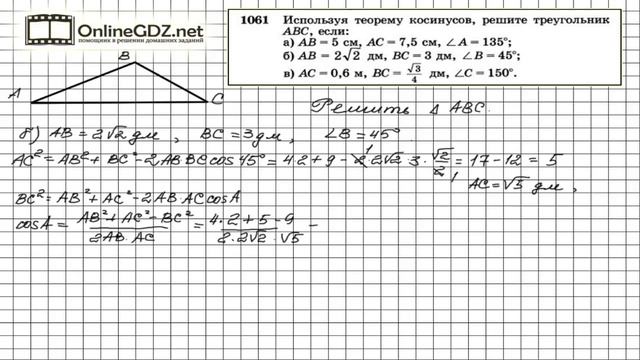 OnlineGDZ.net
помощник в решении домашних заданий
1061 Используя теорему косинусов, решите треугольник
ABC, если:
а) AB = 5 см, AC = 7,5 см, ∠A = 135°;
б) AB = 2√2 дм, BC = 3 дм, ∠B = 45°;
в) AC = 0,6 м, BC = √3/4 дм, ∠C = 150°.
A B C
Решить Δ ABC.
б) AB = 2√2 дм, BC = 3 дм, ∠B = 45°.
AC² = AB² + BC² - 2AB·BC cos 45° = 4·2 + 9 - 2·2√2·3·√2/2 = 17 - 12 = 5
AC = √5 дм,
BC² = AB² + AC² - 2AB·AC cos A
cos A = (AB² + AC² - BC²)/(2AB·AC) = (4·2 + 5 - 9)/(2·2√2·√5) -